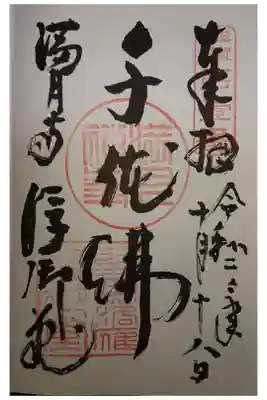 奉拝
令和二年
十月十八日
千体佛
満月寺
浮御堂